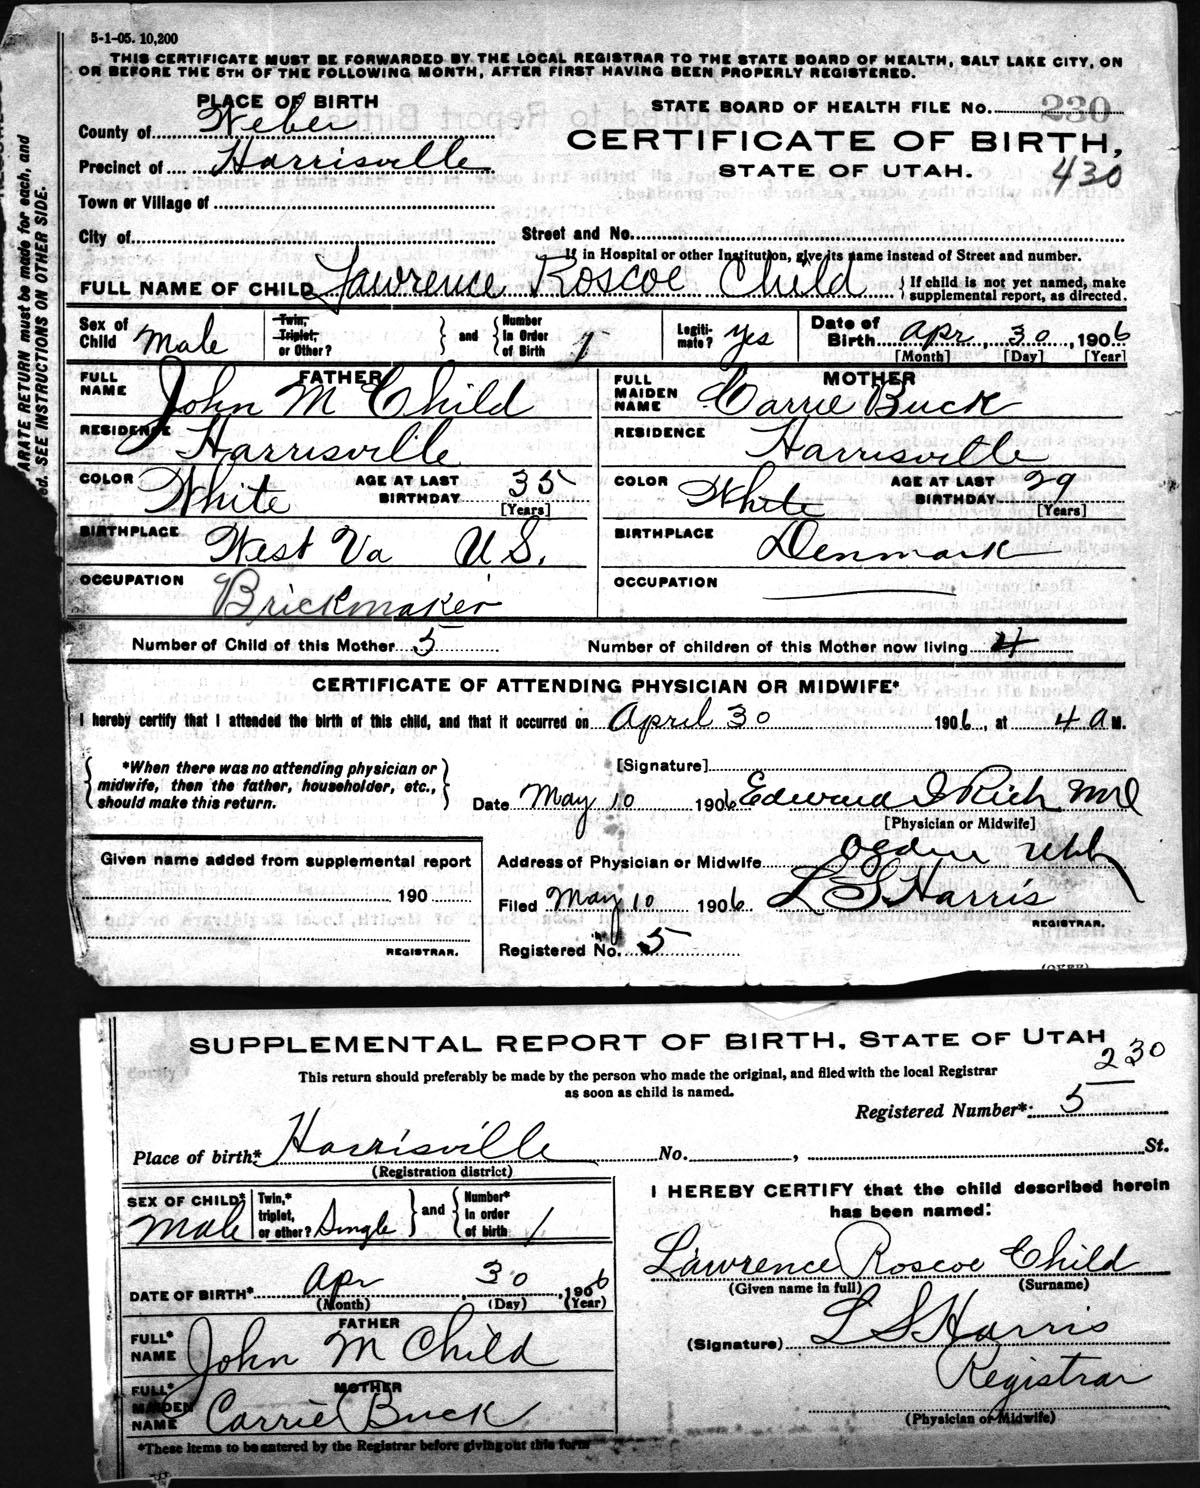 5-1-05. 10,200
THIS CERTIFICATE MUST BE FORWARDED BY THE LOCAL REGISTRAR TO THE STATE BOARD OF HEALTH, SALT LAKE CITY, ON
OR BEFORE THE 5TH OF THE FOLLOWING MONTH, AFTER FIRST HAVING BEEN PROPERLY REGISTERED.
ARATE RETURN must be made for each, and
ed. SEE INSTRUCTIONS ON OTHER SIDE.
PLACE OF BIRTH
STATE BOARD OF HEALTH FILE No. 230
County of Weber
CERTIFICATE OF BIRTH,
Precinct of Harrisville
STATE OF UTAH. 430
Town or Village of
City of Street and No.
If in Hospital or other Institution, give its name instead of Street and number.
FULL NAME OF CHILD Lawrence Roscoe Child { If child is not yet named, make
supplemental report, as directed.
Sex of Child Male Twin, Triplet, or Other? } and { Number In Order of Birth 1 Legiti-mate? Yes Date of Birth Apr, 30, 1906
[Month] [Day] [Year]
FATHER MOTHER
FULL NAME John M Child FULL MAIDEN NAME Carrie Buck
RESIDENCE Harrisville RESIDENCE Harrisville
COLOR White AGE AT LAST BIRTHDAY 35 [Years] COLOR White AGE AT LAST BIRTHDAY 29 [Years]
BIRTHPLACE West Va U S. BIRTHPLACE Denmark
OCCUPATION Brickmaker OCCUPATION
Number of Child of this Mother 5 Number of children of this Mother now living 4
CERTIFICATE OF ATTENDING PHYSICIAN OR MIDWIFE*
I hereby certify that I attended the birth of this child, and that it occurred on April 30 1906, at 4 a M.
{ *When there was no attending physician or midwife, then the father, householder, etc., should make this return. }
[Signature]
Date May 10 1906 Edward I Rich MD
[Physician or Midwife]
Given name added from supplemental report
Address of Physician or Midwife Ogden Utah
190
Filed May 10 1906 L S Harris
REGISTRAR.
REGISTRAR.
Registered No. 5
SUPPLEMENTAL REPORT OF BIRTH, STATE OF UTAH
230
This return should preferably be made by the person who made the original, and filed with the local Registrar
as soon as child is named.
Registered Number* 5
Place of birth* Harrisville No. , St.
(Registration district)
SEX OF CHILD* Male Twin,* triplet, or other? Single } and { Number* in order of birth 1
I HEREBY CERTIFY that the child described herein
has been named:
Lawrence Roscoe Child
(Given name in full) (Surname)
DATE OF BIRTH* Apr, 30, 1906
(Month) (Day) (Year)
FATHER
FULL* NAME John M Child
(Signature) L S Harris
Registrar
(Physician or Midwife)
MOTHER
FULL* MAIDEN NAME Carrie Buck
*These items to be entered by the Registrar before giving out this form